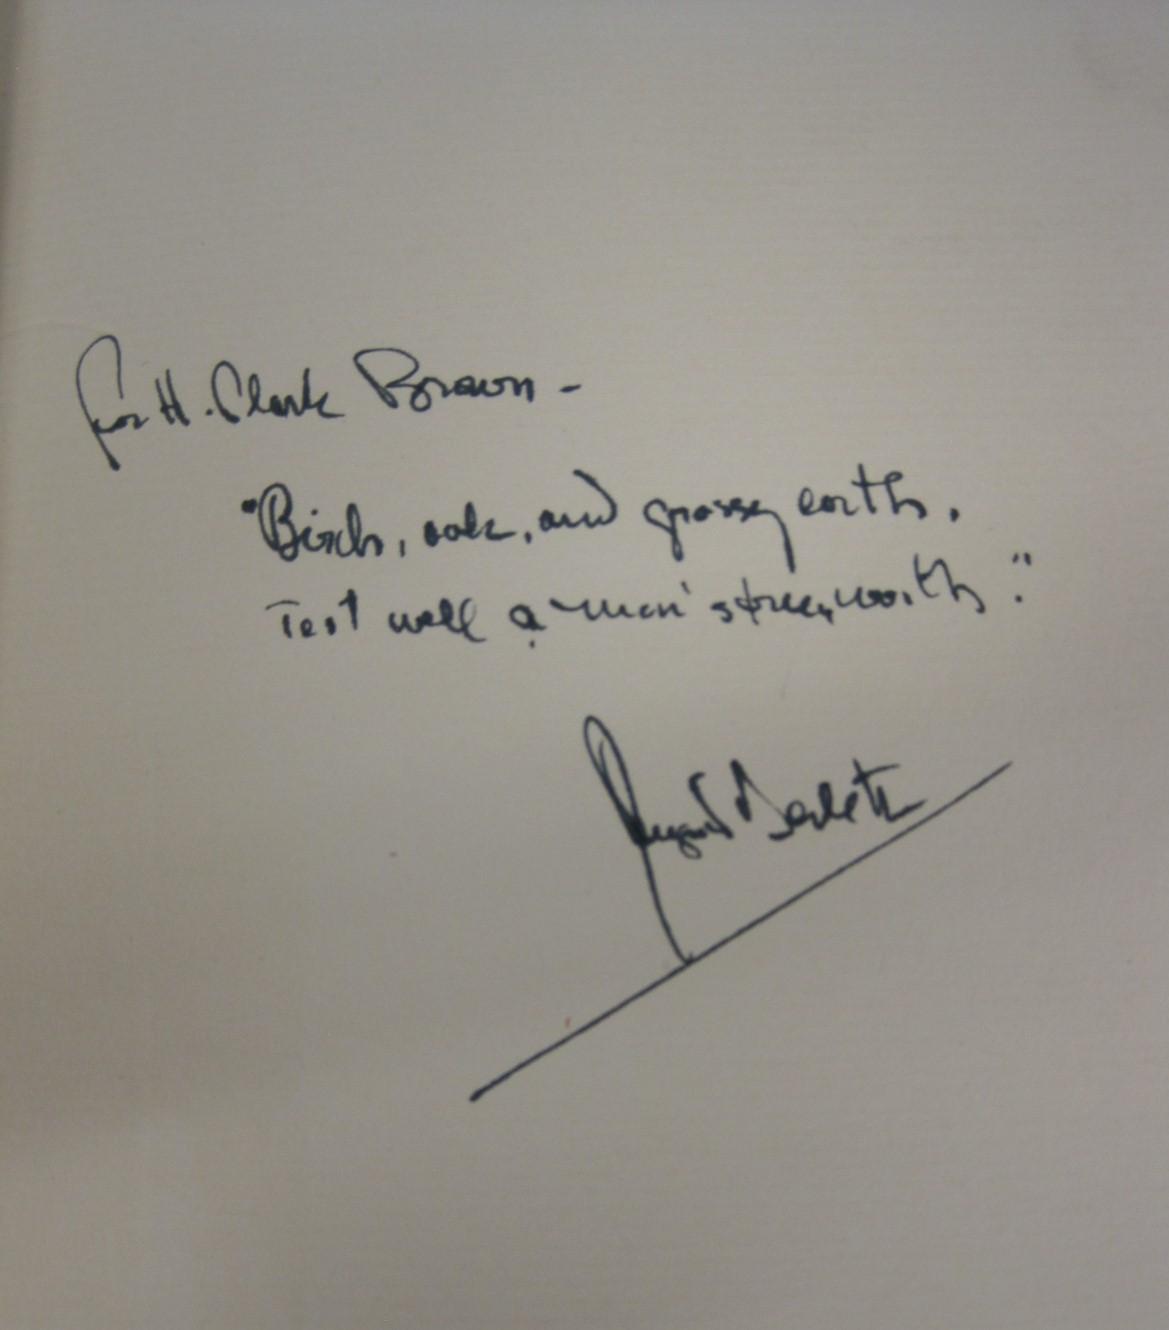 for H. Clark Brown -
"Birch, oak, and grassy earth.
Test well a man's true worth."
August Derleth